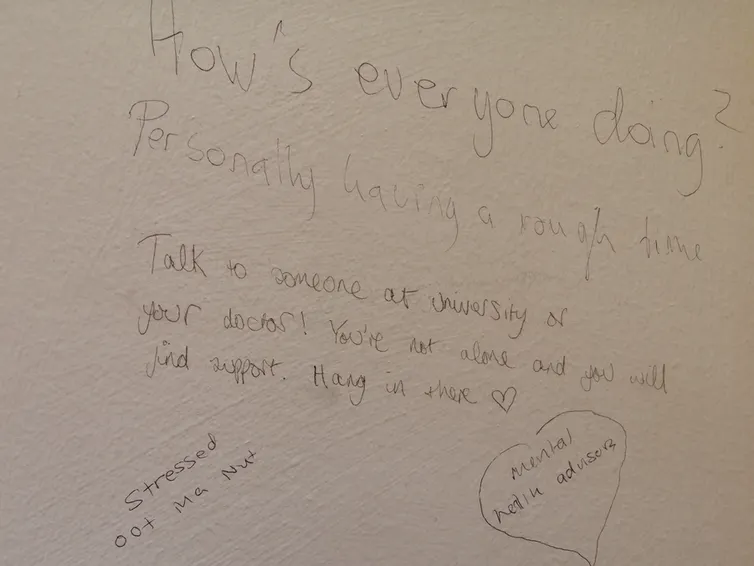 How's everyone doing?
Personally having a rough time
Talk to someone at university or
your doctor! You're not alone and you will
find support. Hang in there ♡
Stressed
oot Ma Nut
mental
health advisers